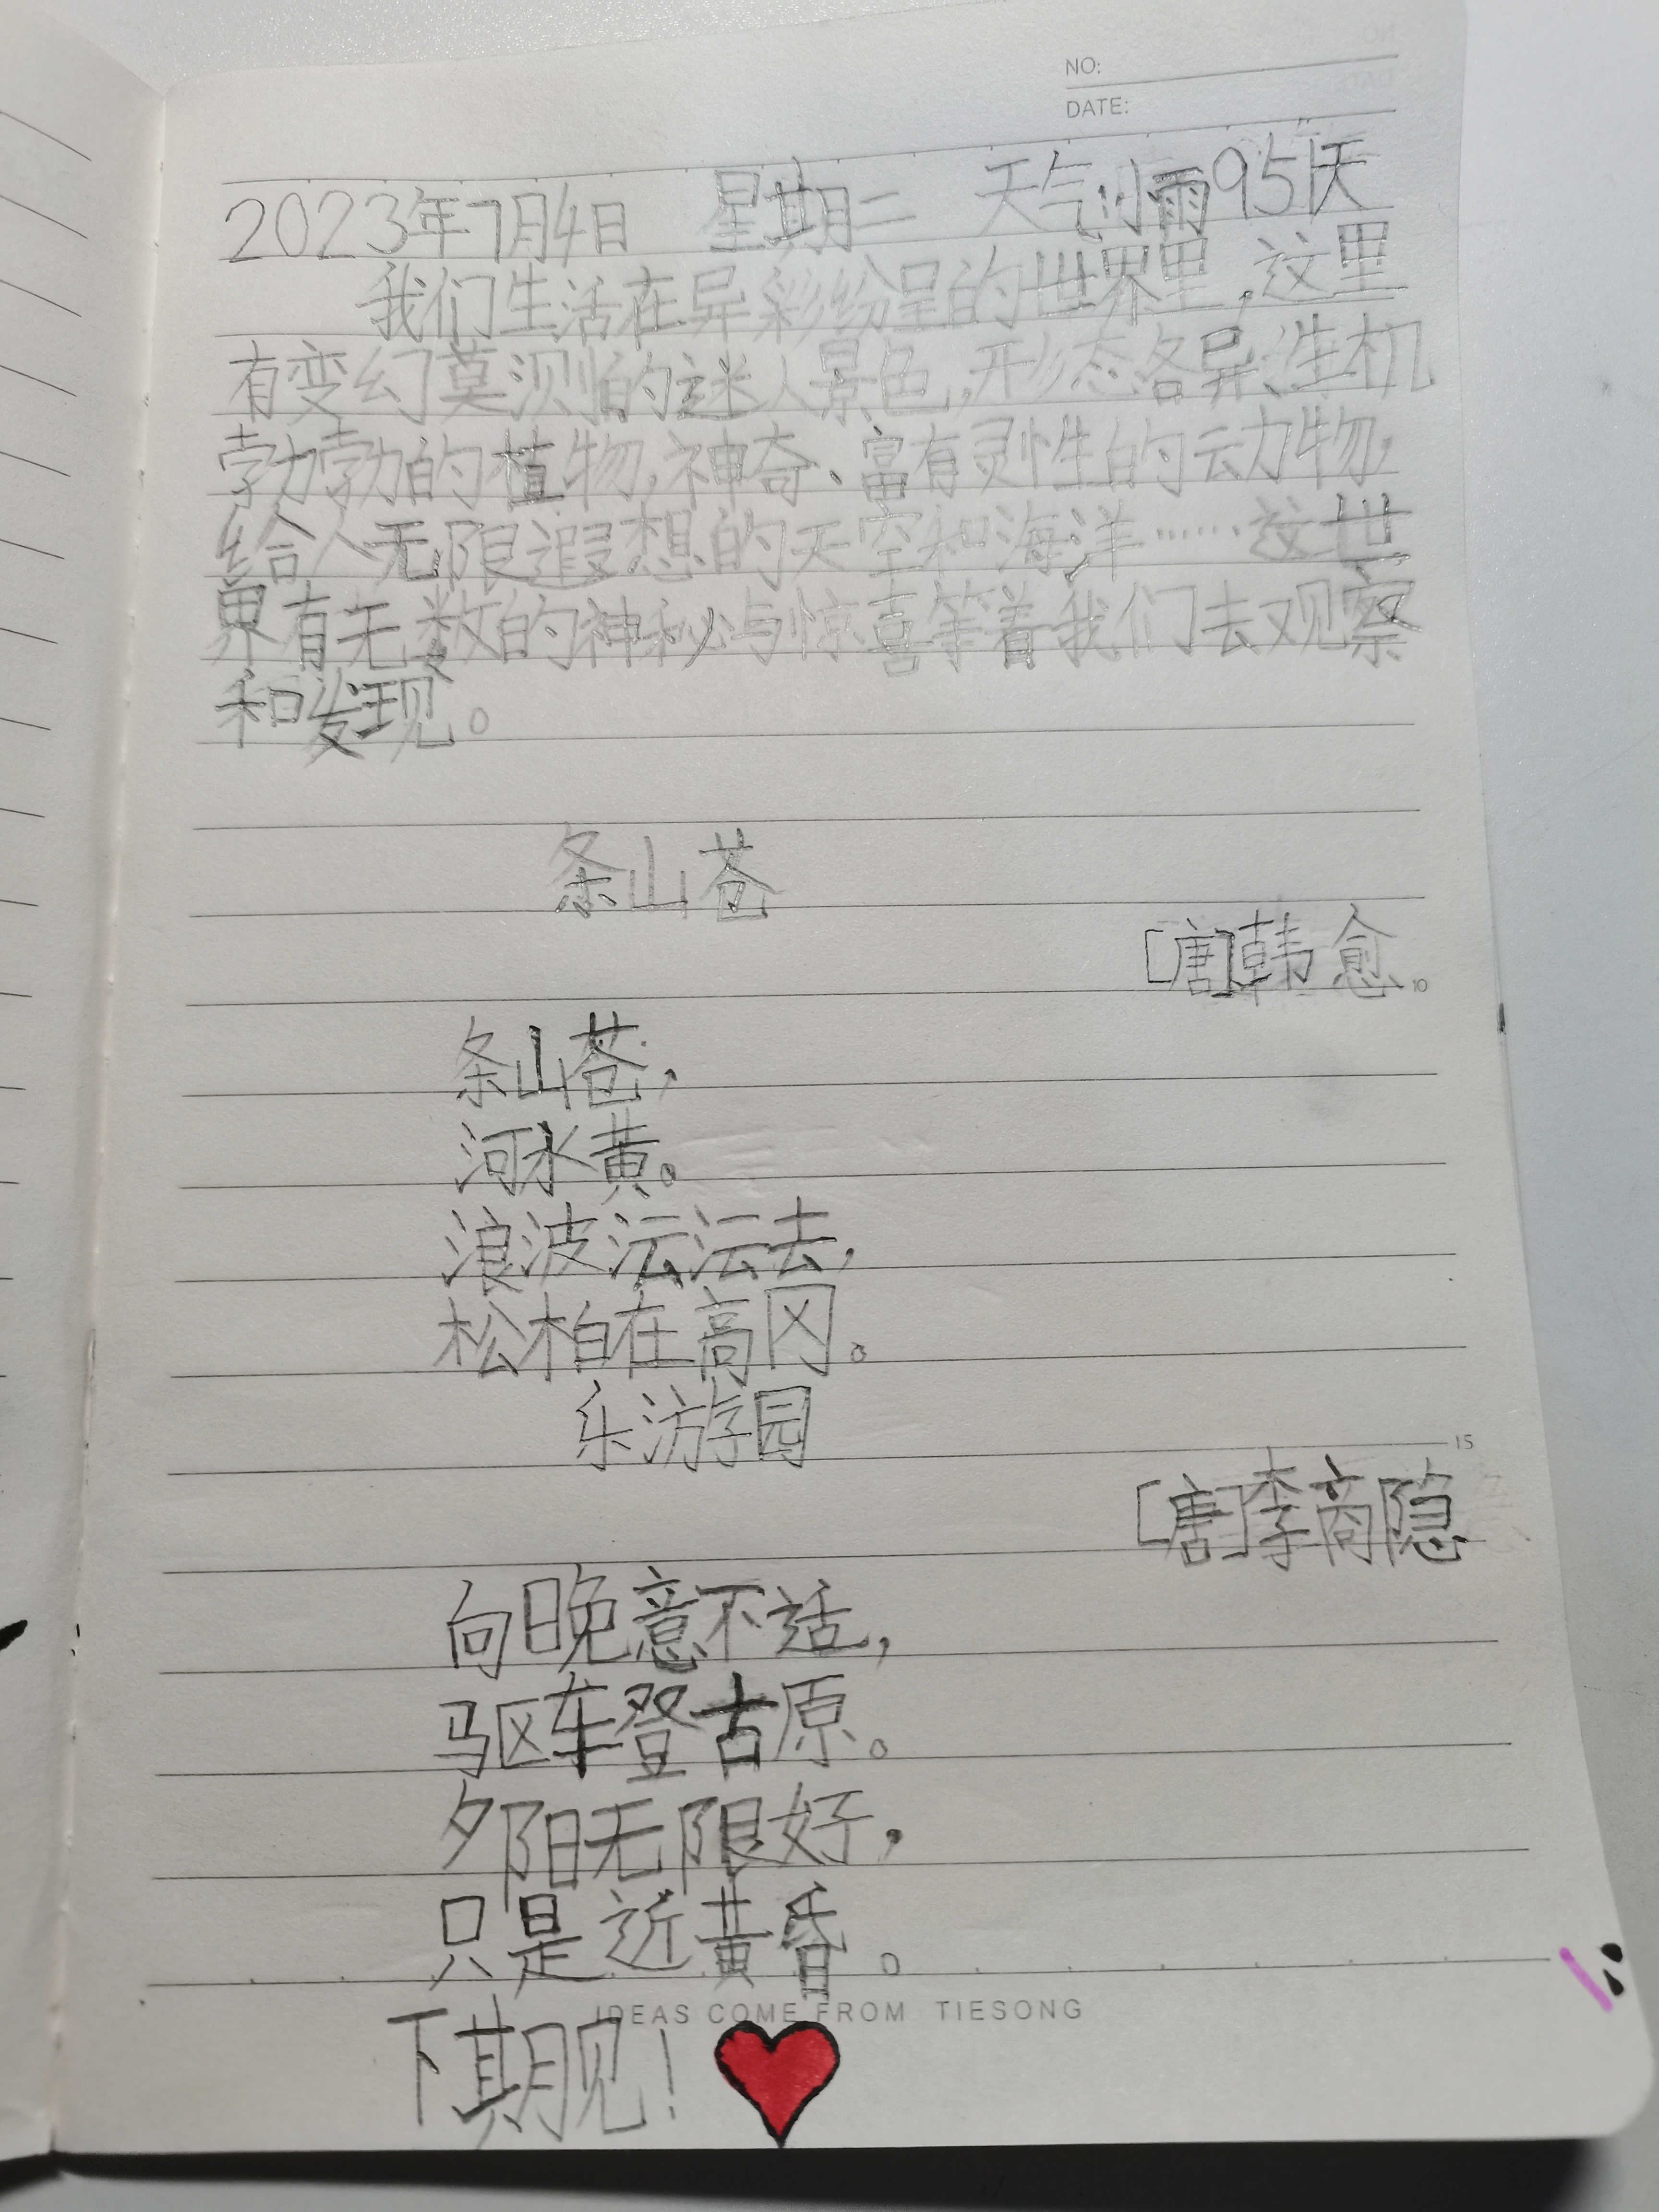 NO:
DATE:
2023年7月4日 星期二 天气:小雨 95天
我们生活在异彩纷呈的世界里,这里
有变幻莫测的迷人景色,形态各异、生机
勃勃的植物,神奇、富有灵性的动物,
给人无限遐想的天空和海洋……这世
界有无数的神秘与惊喜等着我们去观察
和发现。
条山苍
[唐]韩愈
10
条山苍,
河水黄。
浪波沄沄去,
松柏在高冈。
乐游园
15
[唐]李商隐
向晚意不适,
驱车登古原。
夕阳无限好,
只是近黄昏。
IDEAS COME FROM TIESONG
下期见!